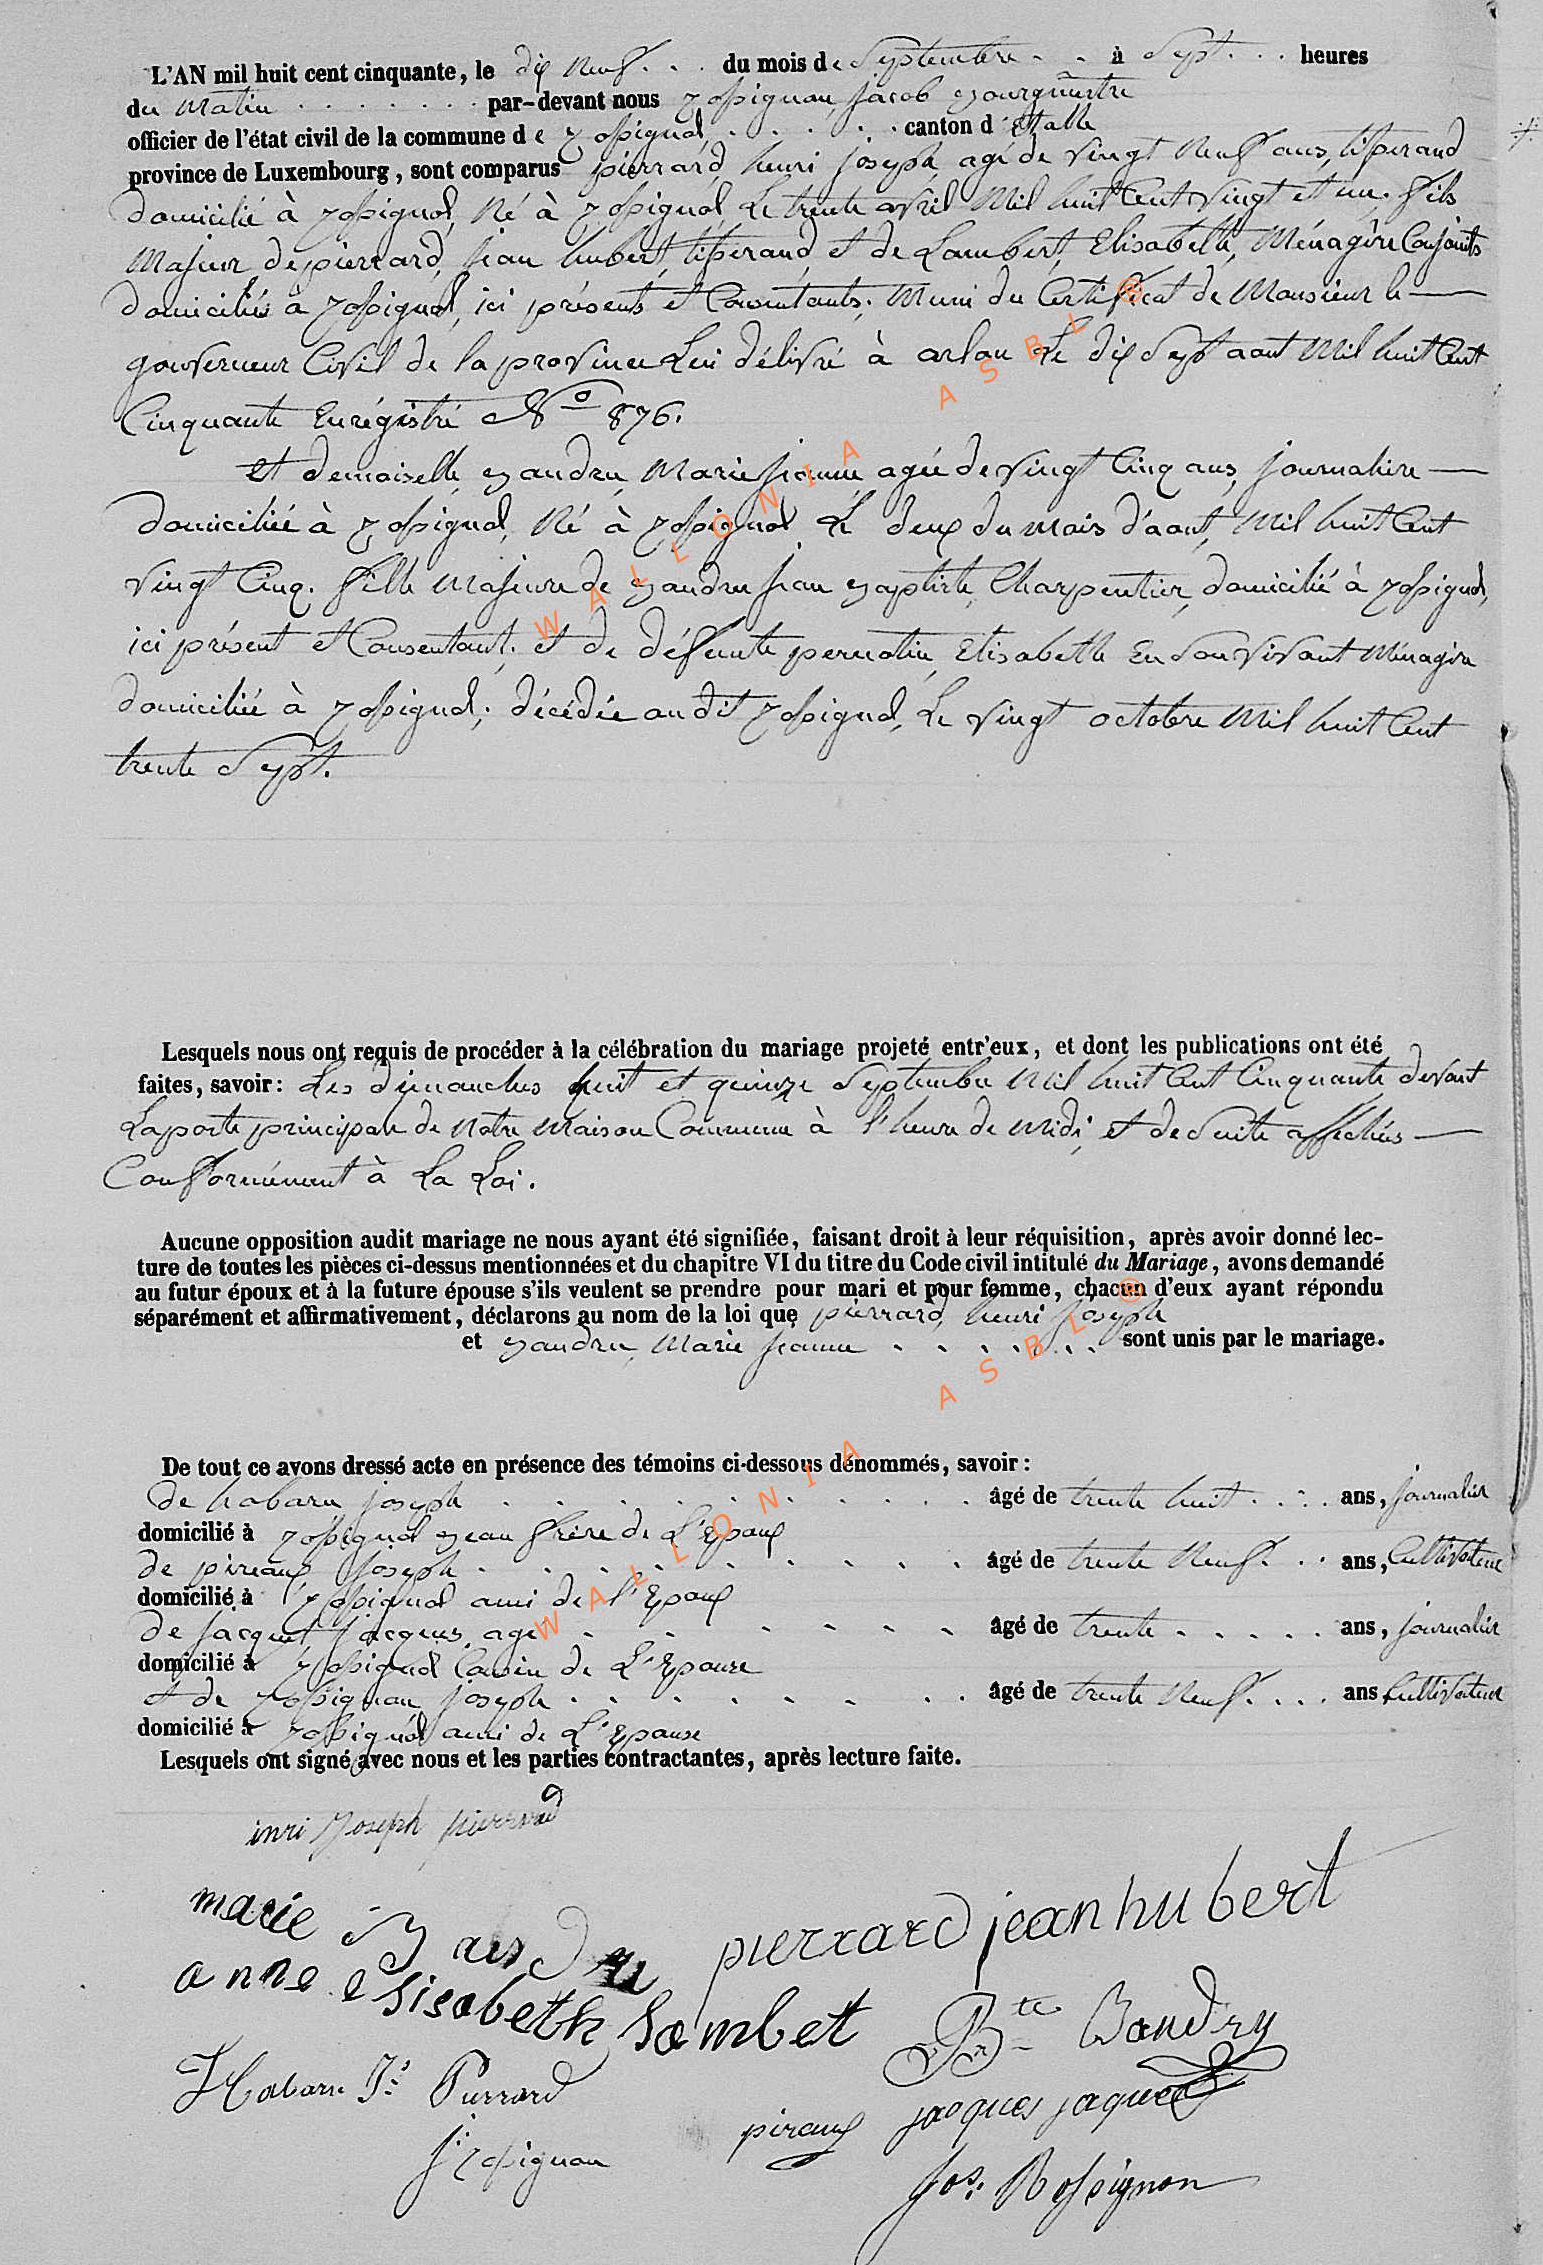 L'AN mil huit cent cinquante, le dix Neuf . . du mois de Septembre . . à Sept . . . heures
du Matin . . . . . . . par-devant nous rossignon, jacob Bourgmestre
officier de l'état civil de la commune de rossignol . . . . . canton d'Etalle
province de Luxembourg, sont comparus pierrard, henri joseph, agé de vingt Neuf ans, tisserand
domicilié à rossignol, Né à rossignol, Le trente avril Mil huit Cent vingt et un, fils
Majeur de pierrard, jean hubert, tisserand et de Lambert, Elisabeth, Ménagère Conjoints
domiciliés à rossignol, ici présents et Consentants; Muni du Certificat de Monsieur le —
gouverneur Civil de la province Lui délivré à arlon Le dix Sept aout Mil huit Cent
Cinquante Enrégistré No 876.
Et demoiselle, Baudru, Marie jeanne agée de vingt Cinq ans, journalière —
domiciliée à rossignol, Né à rossignol, Le deux du mois d'aout, Mil huit Cent
vingt Cinq. fille Majeure de Baudru jean Baptiste, Charpentier, domicilié à rossignol,
ici présent et Consentant; et de défunte pernotin, Elisabeth En Son vivant Ménagère
domiciliée à rossignol; décédée au dit rossignol, Le vingt octobre Mil huit Cent
trente Sept.
Lesquels nous ont requis de procéder à la célébration du mariage projeté entr'eux, et dont les publications ont été
faites, savoir: Les dimanches huit et quinze Septembre Mil huit Cent Cinquante devant
La porte principale de Notre Maison Commune à l'heure de Midi, et de Suite affichées —
Conformément à La Loi.
Aucune opposition audit mariage ne nous ayant été signifiée, faisant droit à leur réquisition, après avoir donné lec-
ture de toutes les pièces ci-dessus mentionnées et du chapitre VI du titre du Code civil intitulé du Mariage, avons demandé
au futur époux et à la future épouse s'ils veulent se prendre pour mari et pour femme, chacun d'eux ayant répondu
séparément et affirmativement, déclarons au nom de la loi que pierrard, henri joseph
et Baudru, Marie jeanne . . . . . . . sont unis par le mariage.
De tout ce avons dressé acte en présence des témoins ci-dessous dénommés, savoir:
de habaru joseph . . . . . . . . . âgé de trente huit . . . ans, journalier
domicilié à rossignol Beau frère de L'Epoux
de pireaux joseph . . . . . . . . . âgé de trente Neuf . . ans, Cultivateur
domicilié à rossignol ami de l'Epoux
de jacquet, jacques, agé . . . . . . . âgé de trente . . . . . ans, journalier
domicilié à rossignol Cousin de L'Epouse
et de rossignon, joseph . . . . . . . . âgé de trente Neuf . . . ans Cultivateur
domicilié à rossignol ami de L'Epouse
Lesquels ont signé avec nous et les parties contractantes, après lecture faite.
inri Joseph pierrard
marie j Baudru pierrard jean hubert
anne elisabeth Lambet Bte Baudry
Habaru Js Pierrard
piraux jacques jaquet
J: rossignon
Jos: Rossignon
WALLONIA ASBL ®
WALLONIA ASBL ®